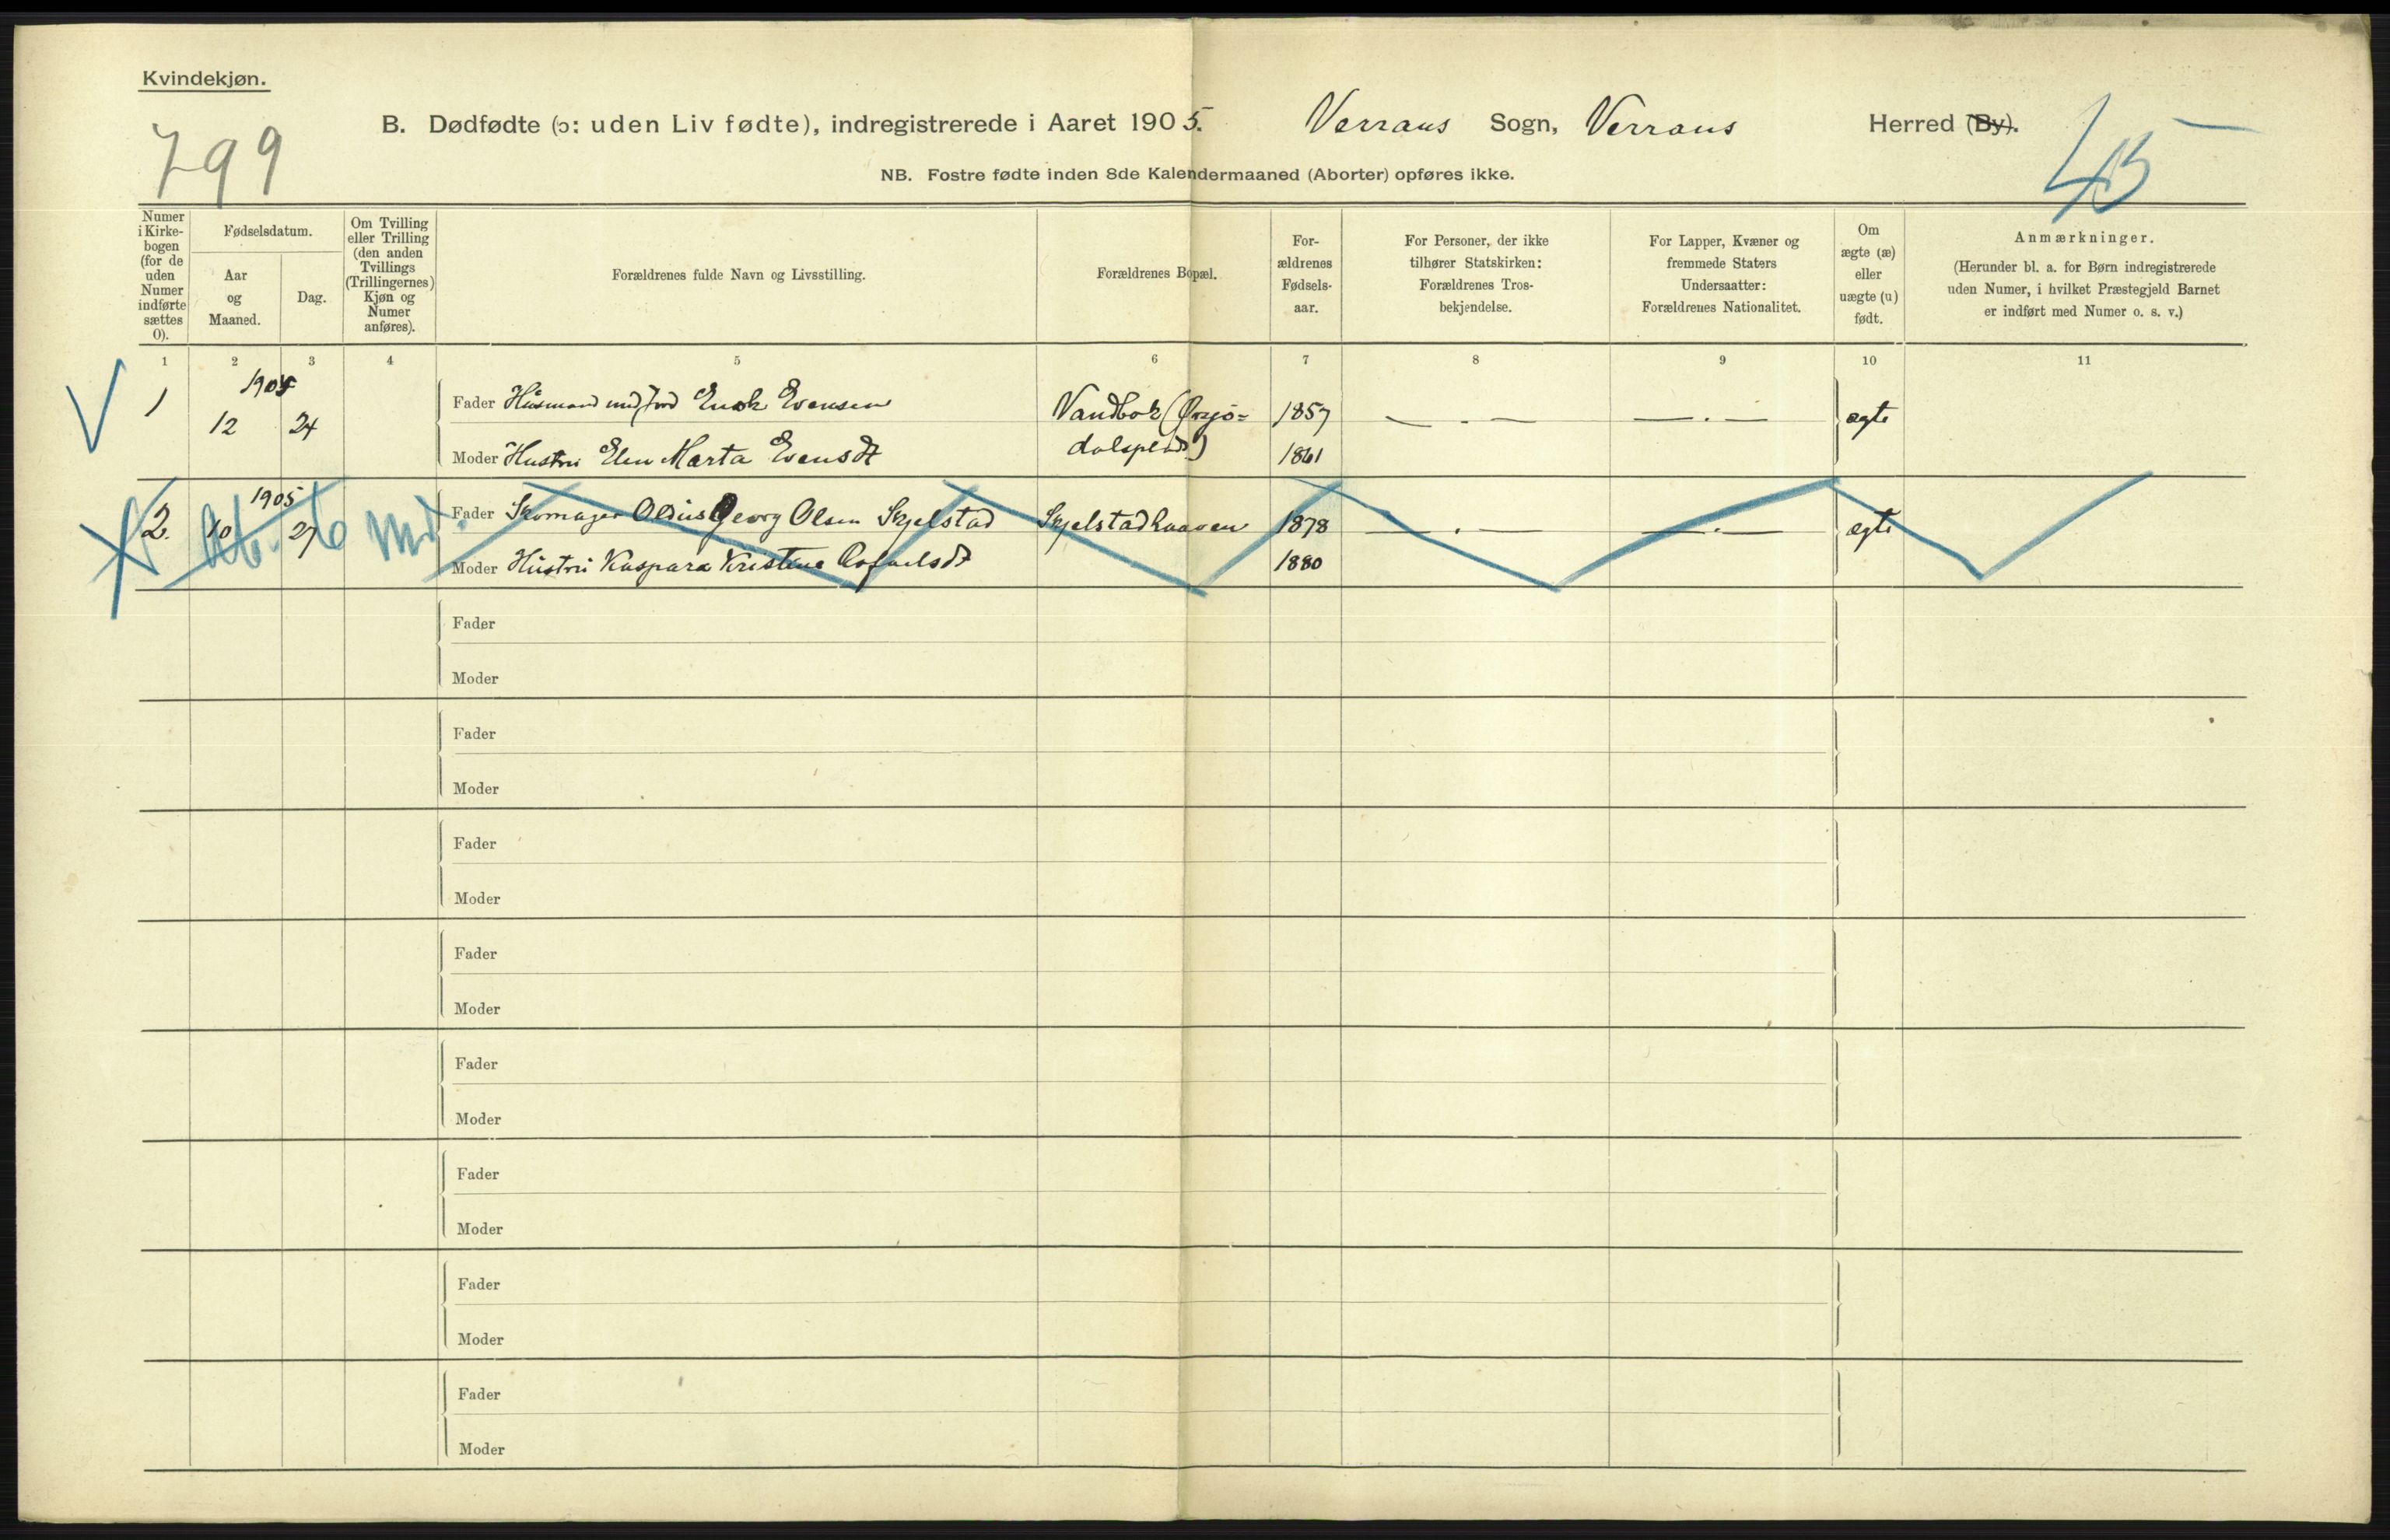 Kvindekjøn.
B. Dødfødte (ɔ: uden Liv fødte), indregistrerede i Aaret 1905. Verrans Sogn, Verrans Herred (By).
799
45
NB. Fostre fødte inden 8de Kalendermaaned (Aborter) opføres ikke.
Numer i Kirkebogen (for de uden Numer indførte sættes 0).
Fødselsdatum.
Aar og Maaned.
Dag.
Om Tvilling eller Trilling (den anden Tvillings (Trillingernes) Kjøn og Numer anføres).
Forældrenes fulde Navn og Livsstilling.
Forældrenes Bopæl.
Forældrenes Fødselsaar.
For Personer, der ikke tilhører Statskirken: Forældrenes Trosbekjendelse.
For Lapper, Kvæner og fremmede Staters Undersaatter: Forældrenes Nationalitet.
Om ægte (æ) eller uægte (u) født.
Anmærkninger.
(Herunder bl. a. for Børn indregistrerede uden Numer, i hvilket Præstegjeld Barnet er indført med Numer o. s. v.)
1 2 3 4 5 6 7 8 9 10 11
1 1905 12 24
Fader Husmand med Jord Enok Evensen Vandbok 1857 — . — — . — ægte
Moder Hustru Elen Marta Evensdt 1861
2. 1905 10 27 Ab. 6 Md.
Fader Skomager Oldus Georg Olsen Skjelstad Skjelstadhaugen 1878 — . — — . — ægte
Moder Hustru Kaspara Kristine 1880
Fader
Moder
Fader
Moder
Fader
Moder
Fader
Moder
Fader
Moder
Fader
Moder
Fader
Moder
Fader
Moder